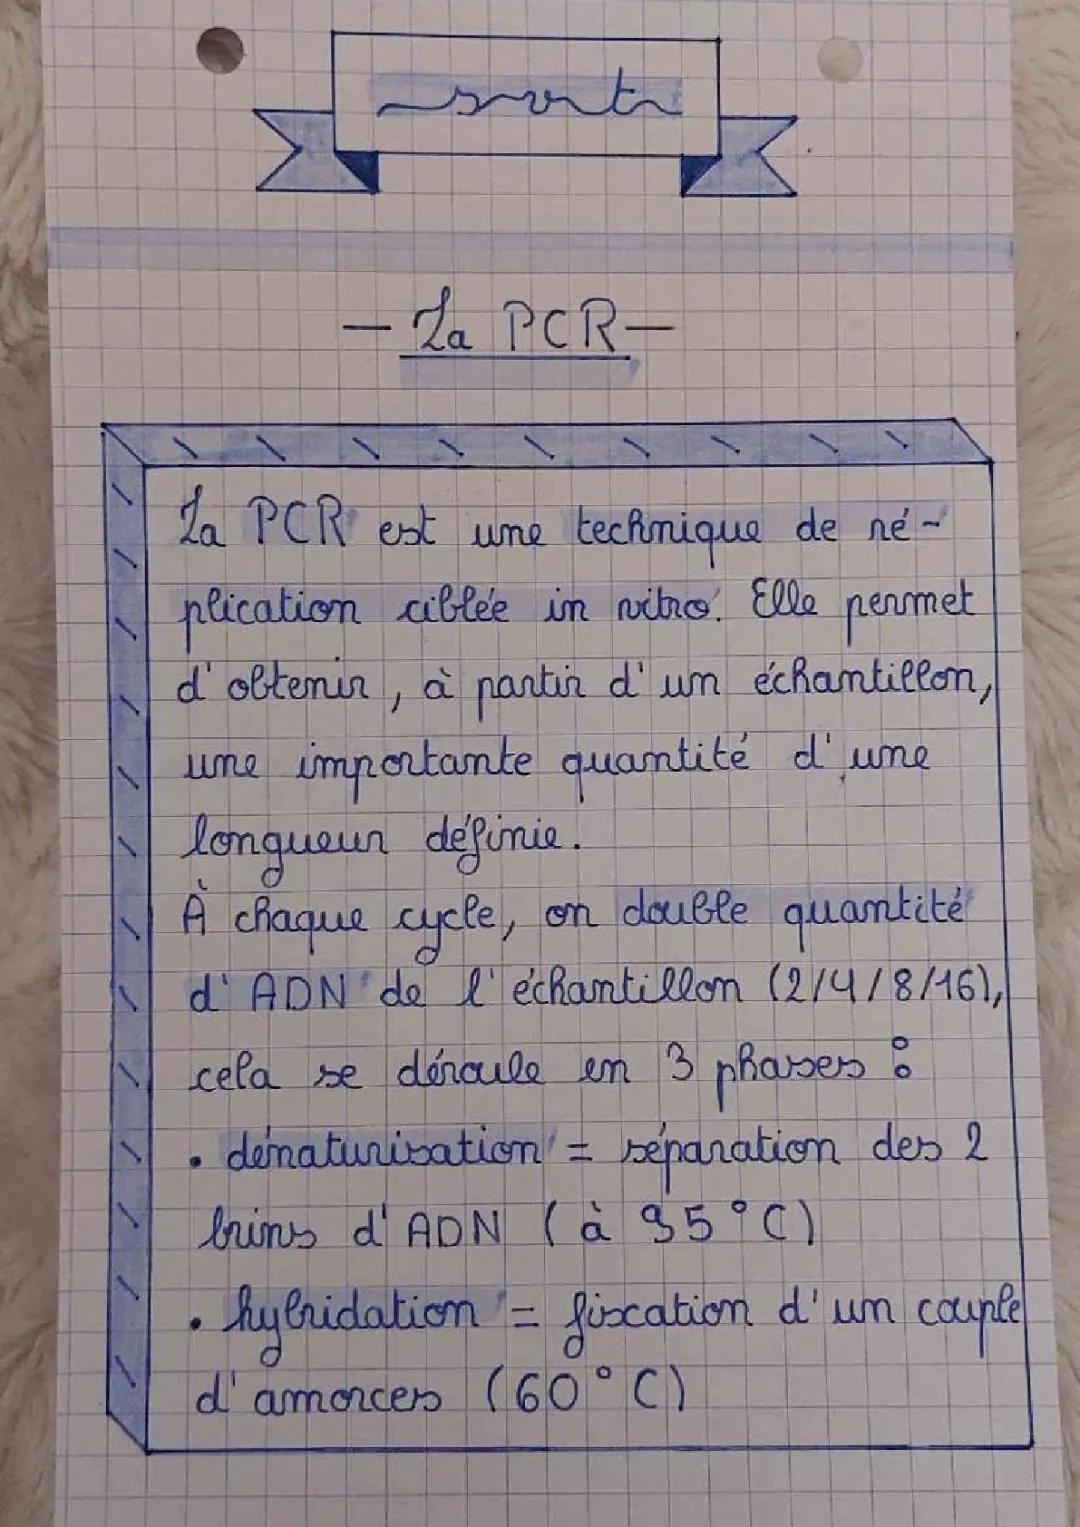 - La PCR -
La PCR est une technique de ré-
plication ciblée in vitro. Elle permet
d'obtenir, à partir d'un échantillon,
une importante quantité d'une
longueur définie.
À chaque cycle, on double quantité
d'ADN de l'échantillon (2/4/8/16),
cela se déroule en 3 phases :
• dénaturisation = séparation des 2
brins d'ADN (à 95°C)
• hybridation = fixcation d'un couple
d'amorces (60°C)